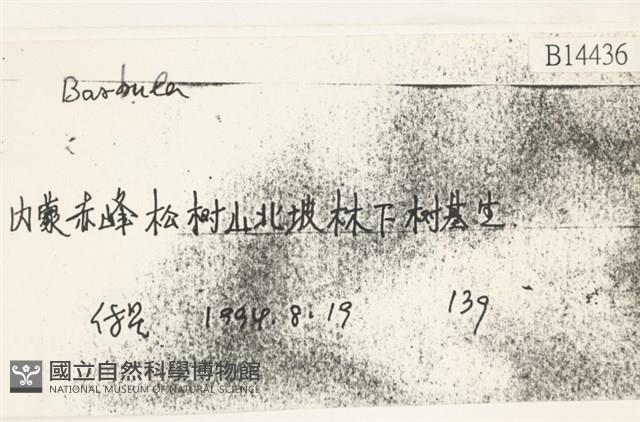 B14436
Barbula
内蒙赤峰松树山北坡林下树基生.
1994.8.19 139
國立自然科學博物館
NATIONAL MUSEUM OF NATURAL SCIENCE